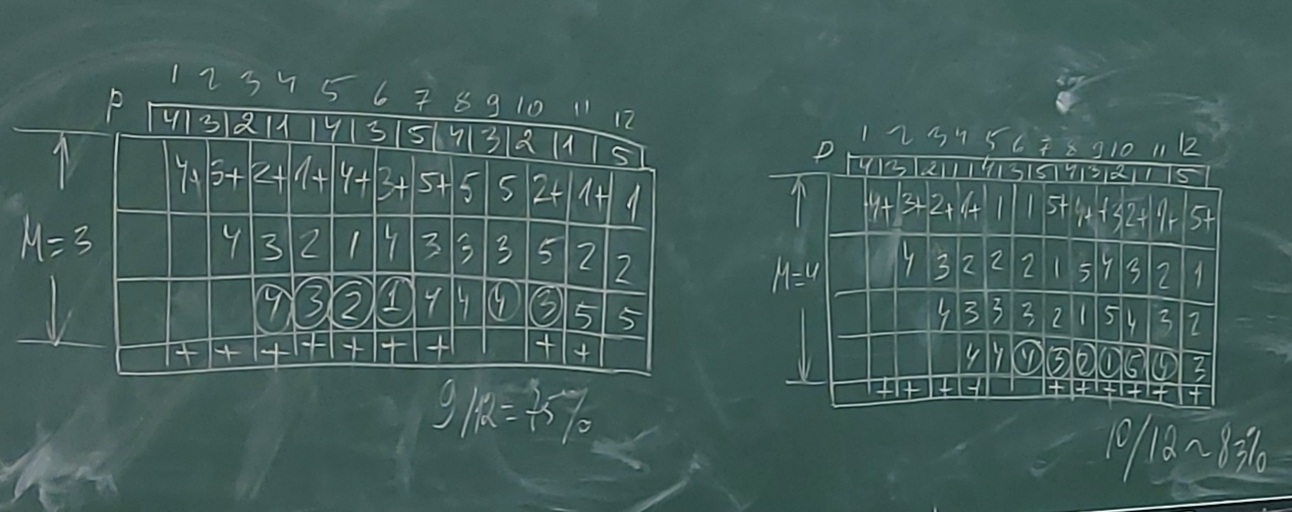 1 2 3 4 5 6 7 8 9 10 11 12
P 4 3 2 1 4 3 5 4 3 2 1 5
4+ 3+ 2+ 1+ 4+ 3+ 5+ 5 5 2+ 1+ 1
M=3 4 3 2 1 4 3 3 3 5 2 2
4 3 2 1 4 4 4 3 5 5
+ + + + + + + + +
9/12=75%
1 2 3 4 5 6 7 8 9 10 11 12
P 4 3 2 1 4 3 5 4 3 2 1 5
4+ 3+ 2+ 1+ 1 1 5+ 4+ +3 2+ 1+ 5+
M=4 4 3 2 2 2 1 5 4 3 2 1
4 3 3 3 2 1 5 4 3 2
4 4 4 3 2 1 5 4 3
+ + + + + + + + + +
10/12~83%